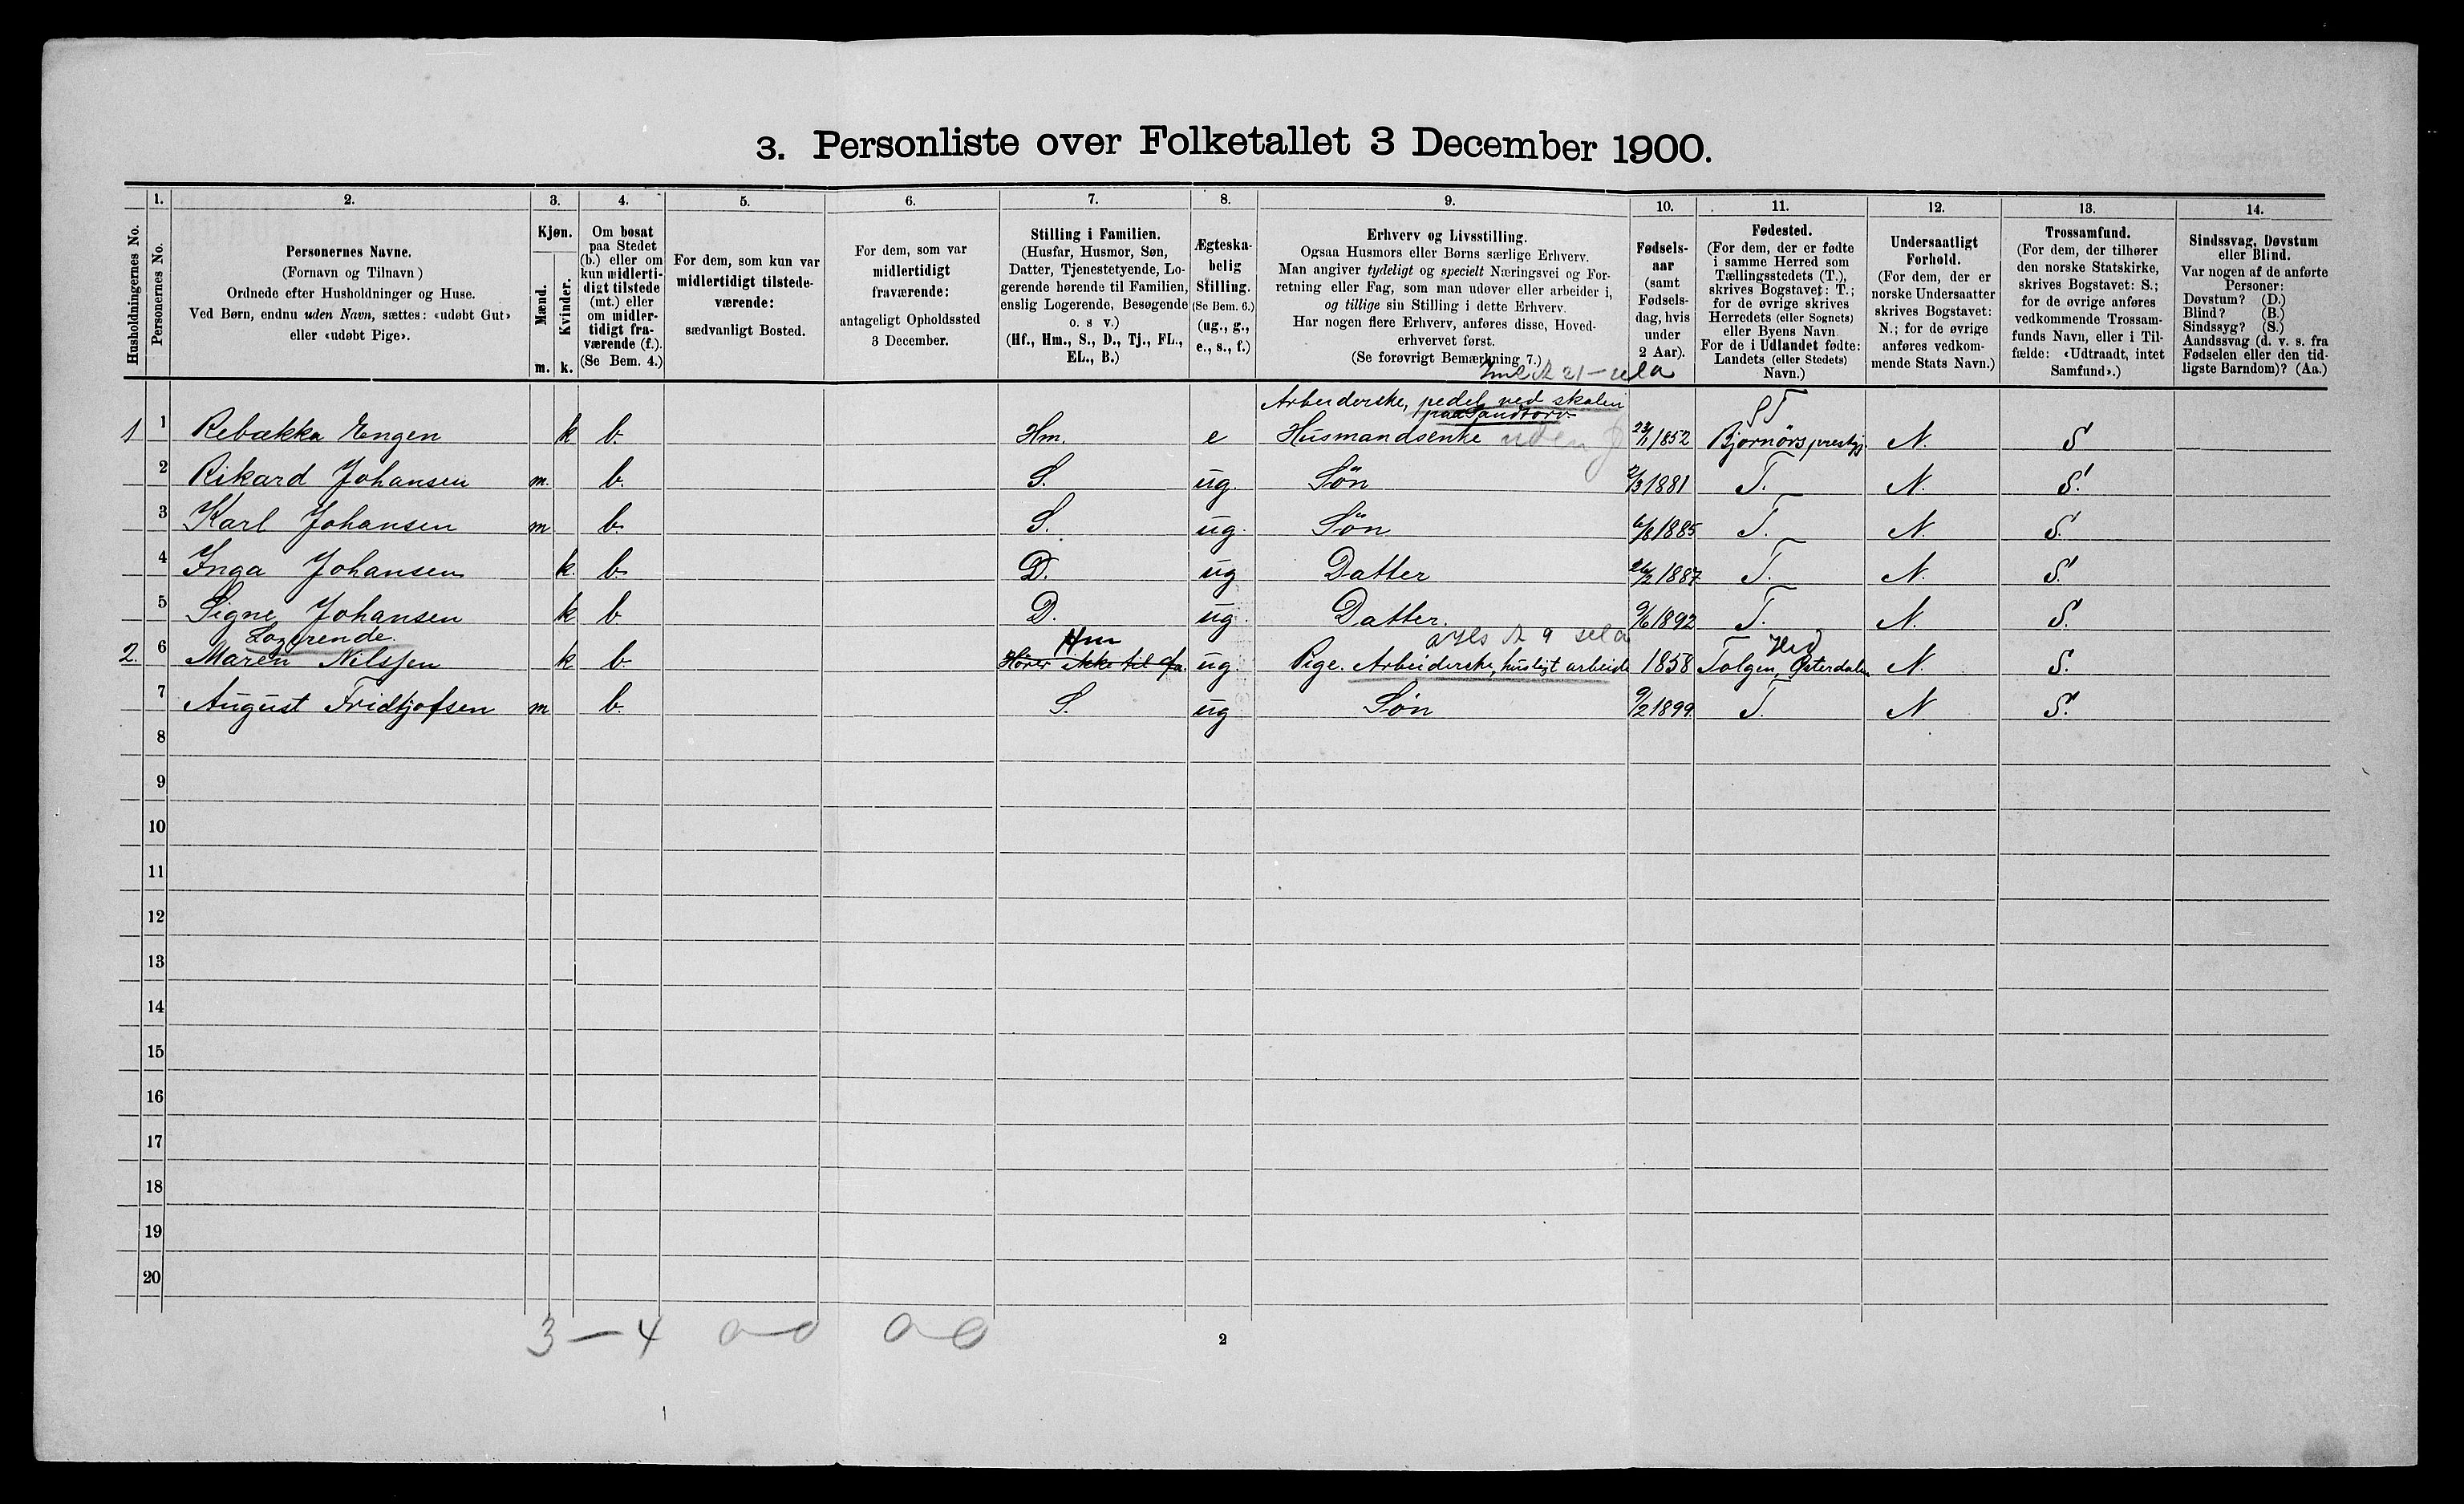 3. Personliste over Folketallet 3 December 1900.
Husholdningernes No.
1.
Personernes No.
2.
Personernes Navne.
(Fornavn og Tilnavn)
Ordnede efter Husholdninger og Huse.
Ved Børn, endnu uden Navn, sættes: «udøbt Gut»
eller «udøbt Pige».
3.
Kjøn.
Mænd.
Kvinder.
m. k.
4.
Om bosat
paa Stedet
(b.) eller om
kun midlerti-
digt tilstede
(mt.) eller
om midler-
tidigt fra-
værende (f.).
(Se Bem. 4.)
5.
For dem, som kun var
midlertidigt tilstede-
værende:
sædvanligt Bosted.
6.
For dem, som var
midlertidigt
fraværende:
antageligt Opholdssted
3 December.
7.
Stilling i Familien.
(Husfar, Husmor, Søn,
Datter, Tjenestetyende, Lo-
gerende hørende til Familien,
enslig Logerende, Besøgende
o. s v.)
(Hf., Hm., S., D., Tj., FL.,
EL., B.)
8.
Ægteska-
belig
Stilling.
(Se Bem. 6.)
(ug., g.,
e., s., f.)
9.
Erhverv og Livsstilling.
Ogsaa Husmors eller Børns særlige Erhverv.
Man angiver tydeligt og specielt Næringsvei og For-
retning eller Fag, som man udøver eller arbeider i,
og tillige sin Stilling i dette Erhverv.
Har nogen flere Erhverv, anføres disse, Hoved-
erhvervet først.
(Se forøvrigt Bemærkning 7.)
10.
Fødsels-
aar
(samt
Fødsels-
dag, hvis
under
2 Aar).
11.
Fødested.
(For dem, der er fødte
i samme Herred som
Tællingsstedets (T.),
skrives Bogstavet: T.;
for de øvrige skrives
Herredets (eller Sognets)
eller Byens Navn
For de i Udlandet fødte:
Landets (eller Stedets)
Navn.)
12.
Undersaatligt
Forhold.
(For dem, der er
norske Undersaatter
skrives Bogstavet:
N.; for de øvrige
anføres vedkom-
mende Stats Navn.)
13.
Trossamfund.
(For dem, der tilhører
den norske Statskirke,
skrives Bogstavet: S.;
for de øvrige anføres
vedkommende Trossam-
funds Navn, eller i Til-
fælde: «Udtraadt, intet
Samfund».)
14.
Sindssvag, Døvstum
eller Blind.
Var nogen af de anførte
Personer:
Døvstum? (D.)
Blind? (B.)
Sindssyg? (S.)
Aandssvag (d. v. s. fra
Fødselen eller den tid-
ligste Barndom)? (Aa.)
Arbeiderske, pedel ved skolen
paa Sandtorv
1 1 Rebækka Engen k b Hm. e Husmandsenke uden 23/1 1852 Bjørnørs prestgj. N. S
2 Rikard Johansen m. b. S. ug. Søn 2/3 1881 T. N. S.
3 Karl Johansen m b. S. ug. Søn 6/8 1885 T. N. S.
4 Inga Johansen k. b. D. ug Datter 26/2 1887 T. N. S.
5 Signe Johansen k b D. ug. Datter. 9/6 1892 T. N. S.
Logerende Hm
2. 6 Maren Nilssen k b Hører ikke til fa. ug. Pige. Arbeiderske, husligt arbeide 1858 Tolgen, Østerdalen N. S.
7 August Fridtjofsen m b. S. ug Søn 9/2 1899. T. N S.
8
9
10
11
12
13
14
15
16
17
18
19
20
3 – 4 0–0 0–0
2